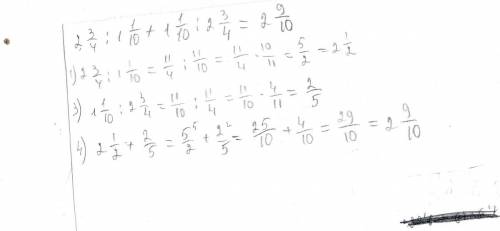 2 3/4 : 1 1/10 + 1 1/10 : 2 3/4 = 2 9/10
1) 2 3/4 : 1 1/10 = 11/4 : 11/10 = 11/4 · 10/11 = 5/2 = 2 1/2
3) 1 1/10 : 2 3/4 = 11/10 : 11/4 = 11/10 · 4/11 = 2/5
4) 2 1/2 + 2/5 = 5/2 ⁵ + 2/5 ² = 25/10 + 4/10 = 29/10 = 2 9/10